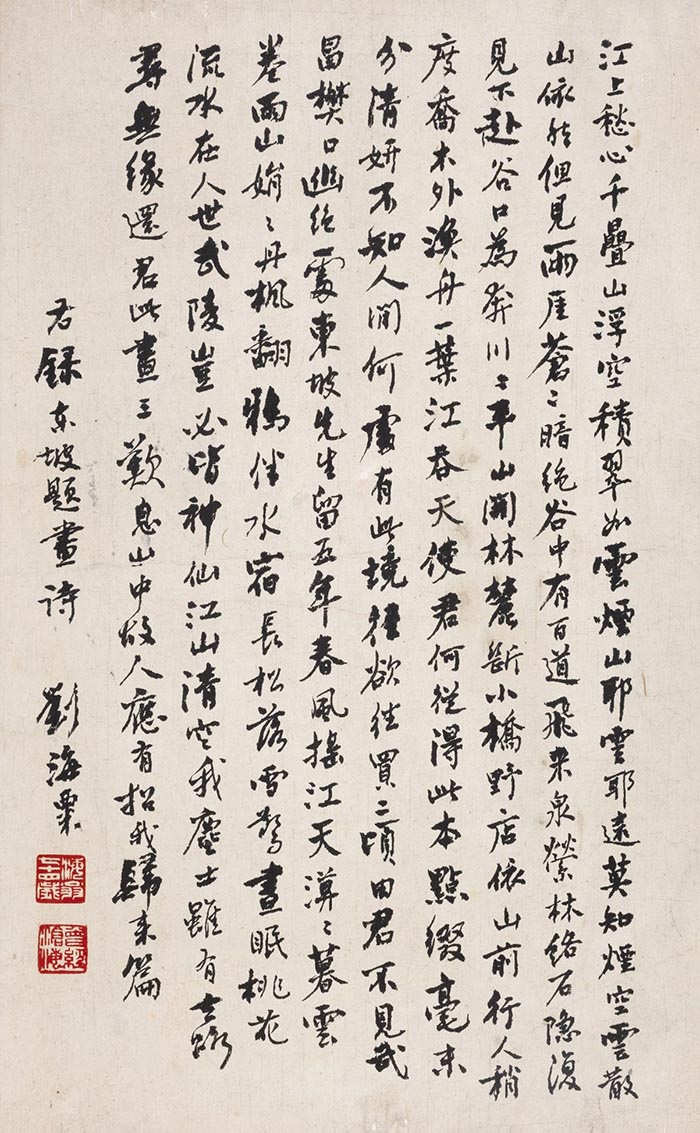 江上愁心千疊山浮空積翠如雲煙山耶雲耶遠莫知煙空雲散
山依然但見兩崖蒼〻暗絕谷中有百道飛來泉縈林絡石隱復
見下赴谷口為奔川〻平山開林麓斷小橋野店依山前行人稍
度喬木外漁舟一葉江吞天使君何從得此本點綴毫末
分清妍不知人間何處有此境徑欲往買二頃田君不見武
昌樊口幽絕處東坡先生留五年春風搖江天漠〻暮雲
卷雨山娟〻丹楓翻鴉伴水宿長松落雪驚晝眠桃花
流水在人世武陵豈必皆神仙江山清空我塵土雖有去路
尋無緣還君此畫三歎息山中故人應有招我歸來篇
右錄东坡題畫诗 劉海粟
曾經滄海